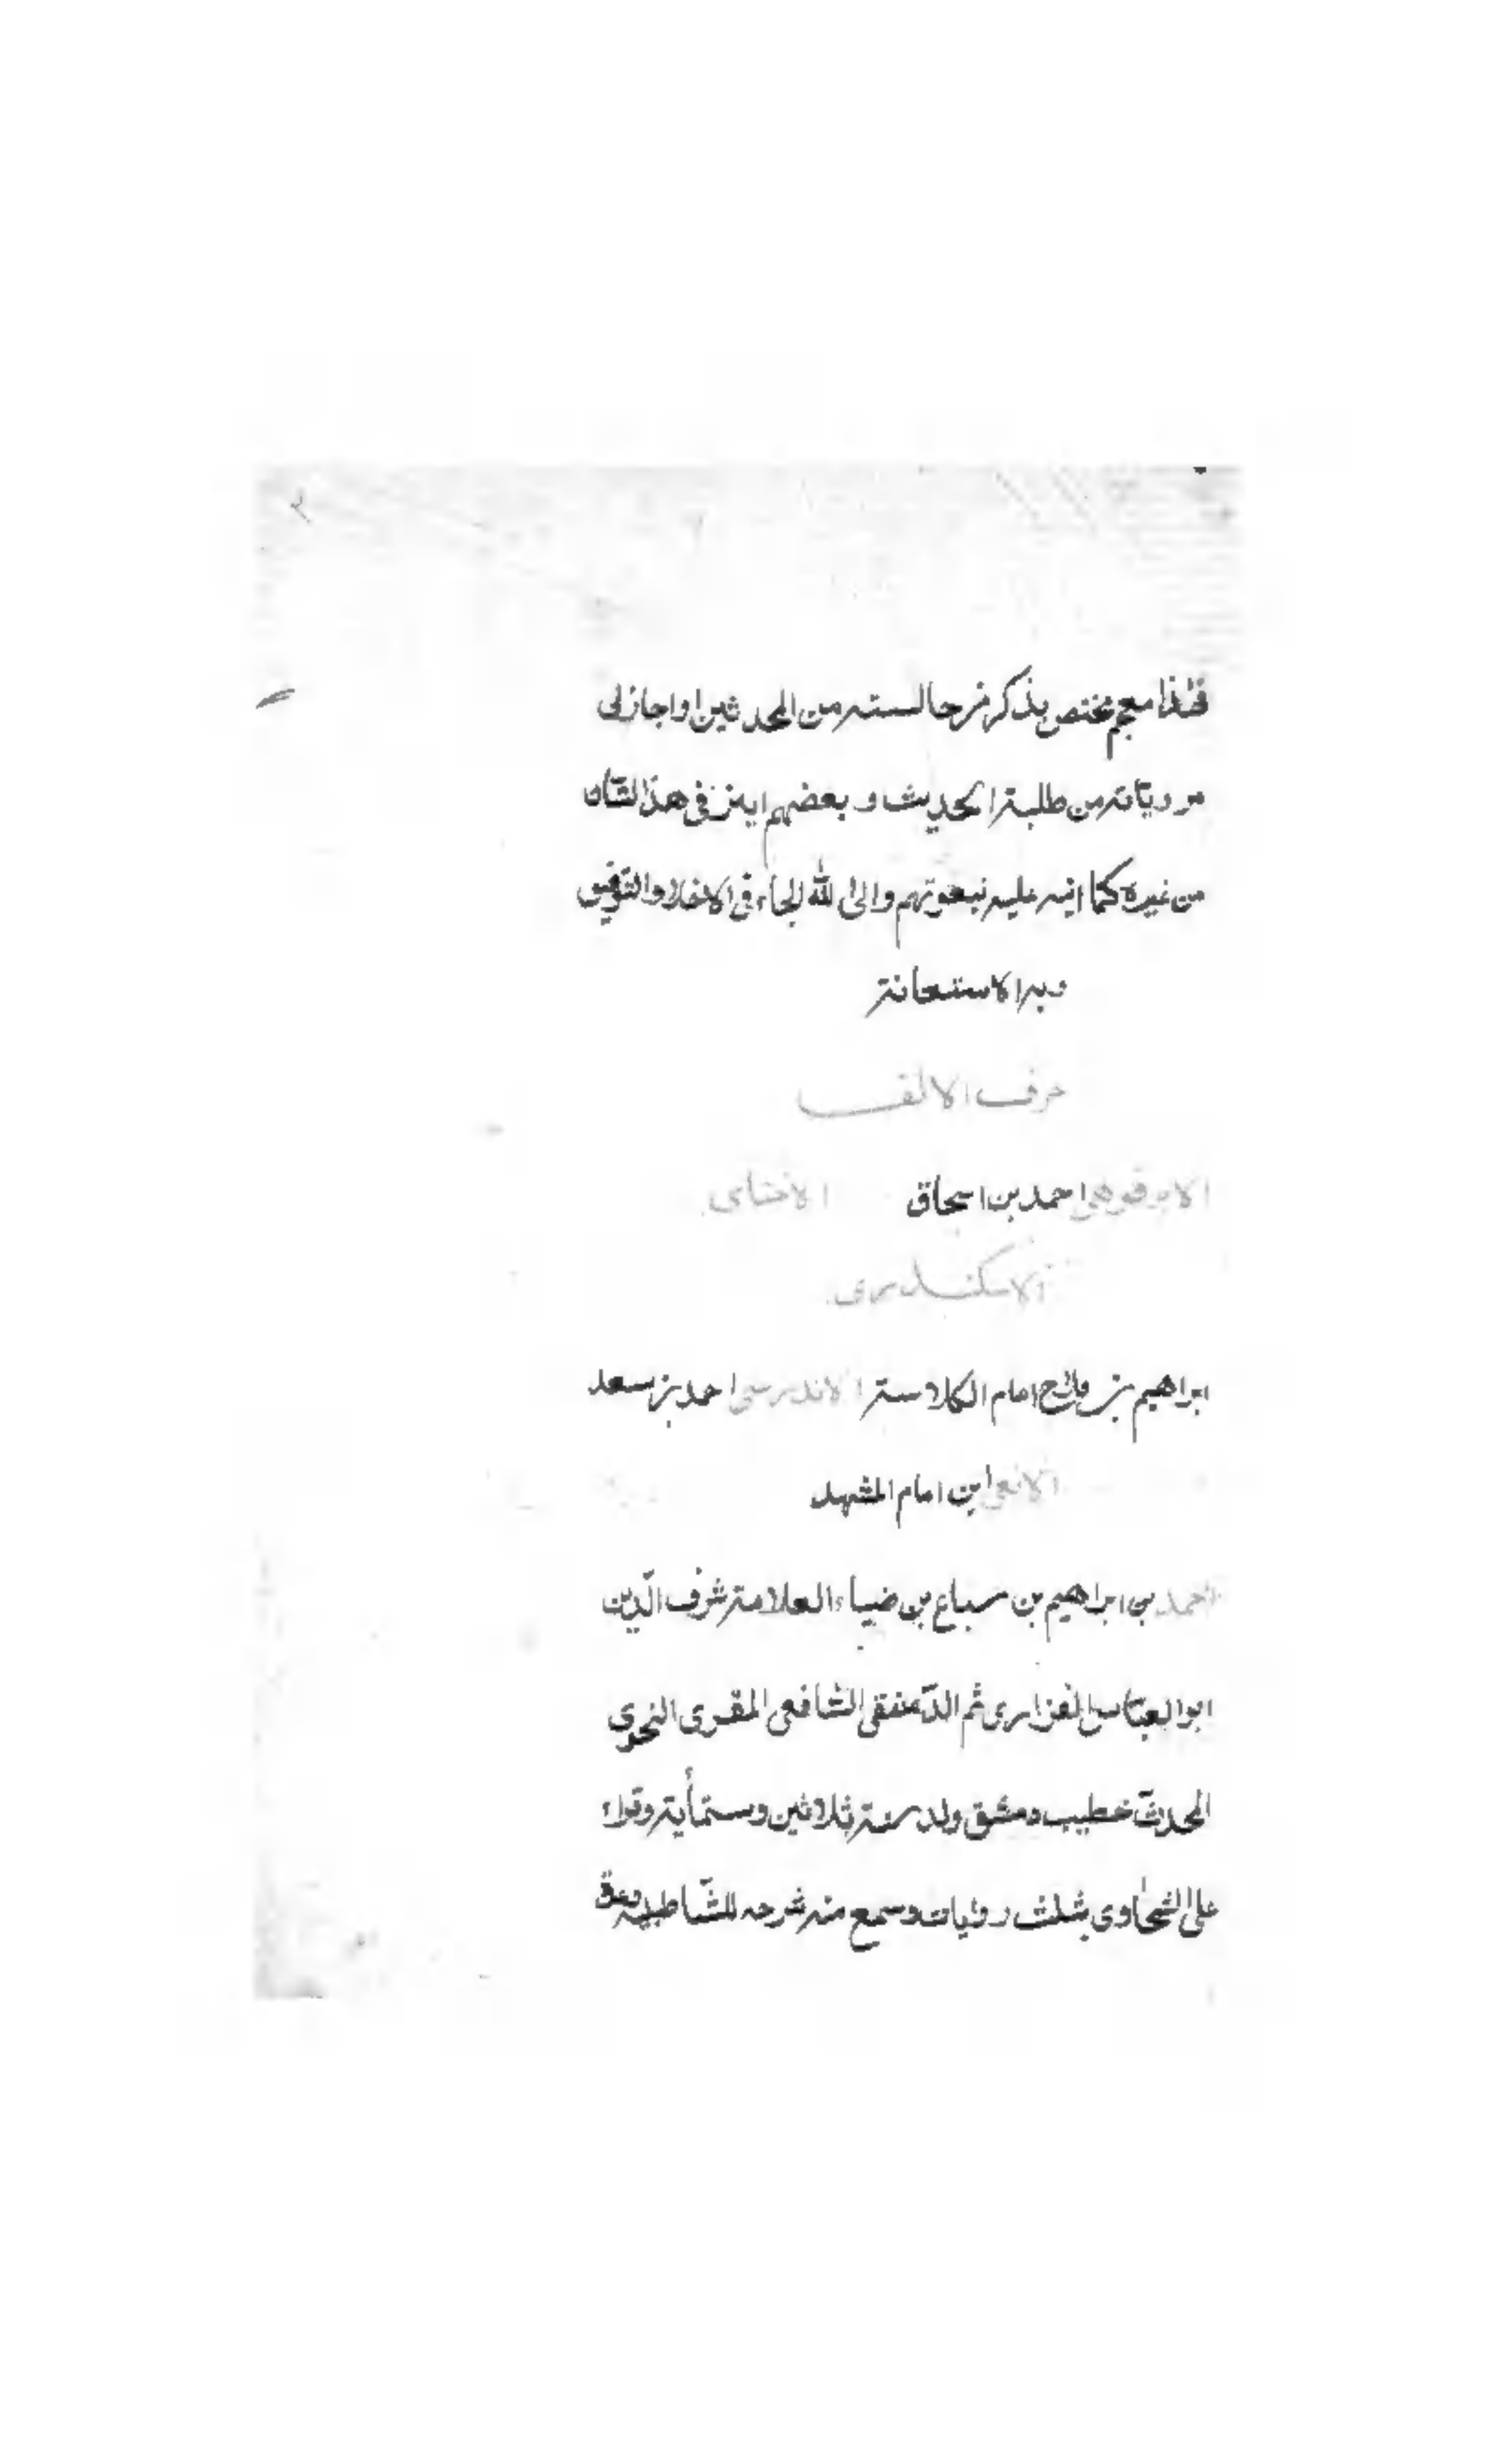 ٢
فهذا معجم مختص بذكر من جالسته من المحدثين او اجاز لي
مروياته من طلبة الحديث و بعضهم اميز في هذا الشان
من غيره كما انبه عليه نبعوتهم والى الله الجأ في الاخلاد والتوفيق
وبه الاستعانة
حرف الالف
الابرقوهى احمد بن اسحاق الاخناى
الاسكندرى
ابراهيم بن فلاح امام الكلاسة الاندرسى احمد بن سعد
ابن امام المشهد
احمد بن ابراهيم بن سباع بن ضياء العلامة شرف الدّين
ابو العبّاس الفزارى ثم الدّمشقى الشافعى المقرى النحوى
المحدّث خطيب دمشق ولد سنة ثلاثين وستمأية وقراء
على السخاوى بثلث روايات وسمع منه شرحه للشّاطبية وعدة